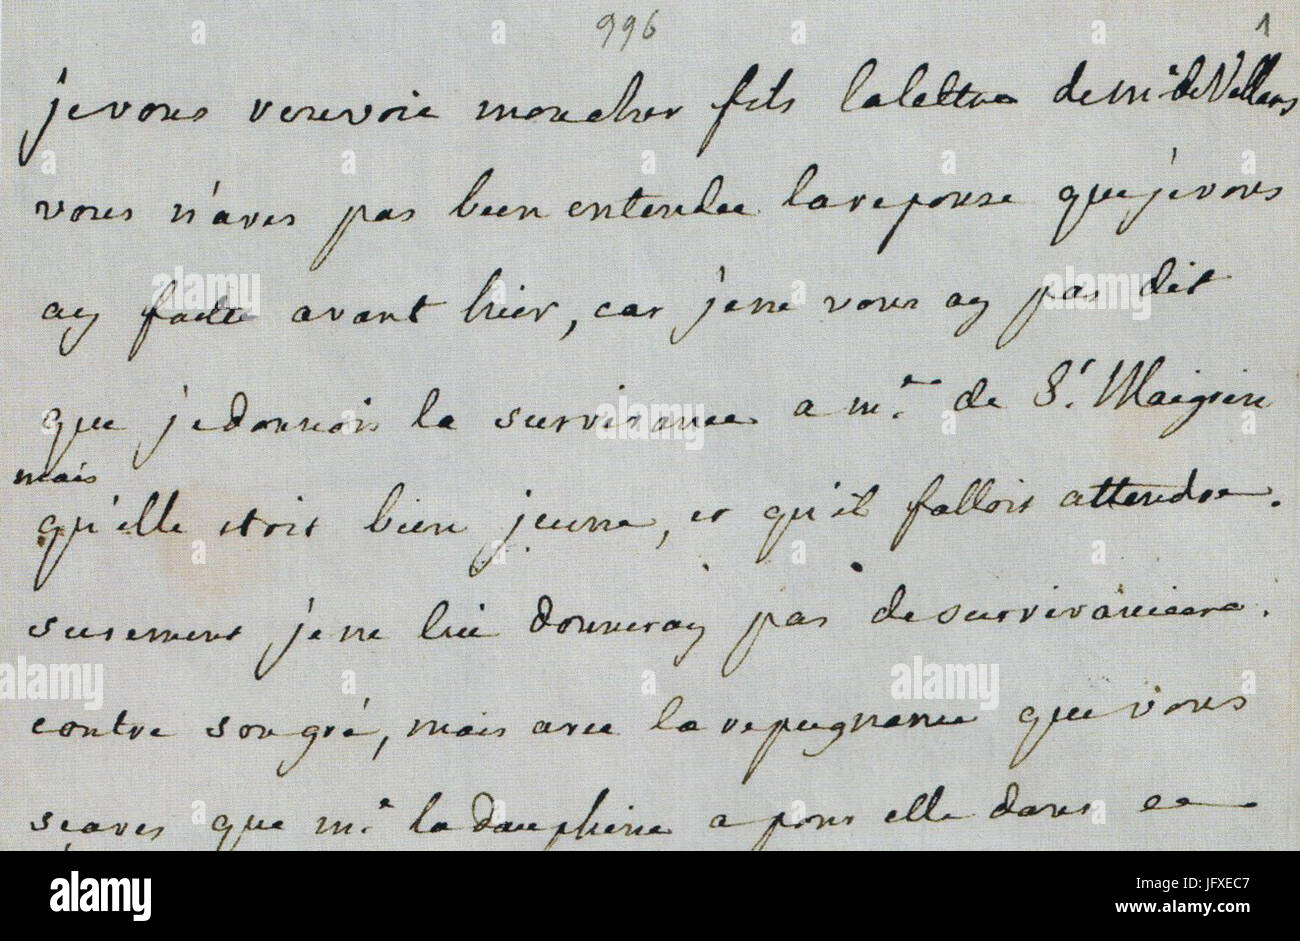 996
1
je vous renvoie mon cher fils la lettre de mᵉ de Villars
vous n'aves pas bien entendu la reponse que je vous
ay faite avant hier, car je ne vous ay pas dit
que je donnois la survivance a mᵉ de Sᵗ Maigrin
mais
qu'elle etoit bien jeune, et qu'il falloit attendre.
surement je ne lui donneray pas de survivanciere
contre son gré, mais avec la repugnance que vous
sçaves que mᵉ la dauphine a pour elle dans ce
alamy stock photo
JFXEC7
www.alamy.com